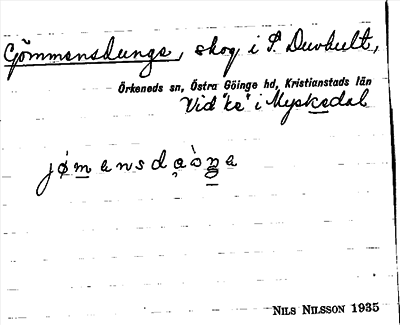 Gömmensdunge, skog i S. Duvhult,
Örkeneds sn, Östra Göinge hd, Kristianstads län
Vid "ke" i Myskedal
jømansdaòŋa
NILS NILSSON 1935